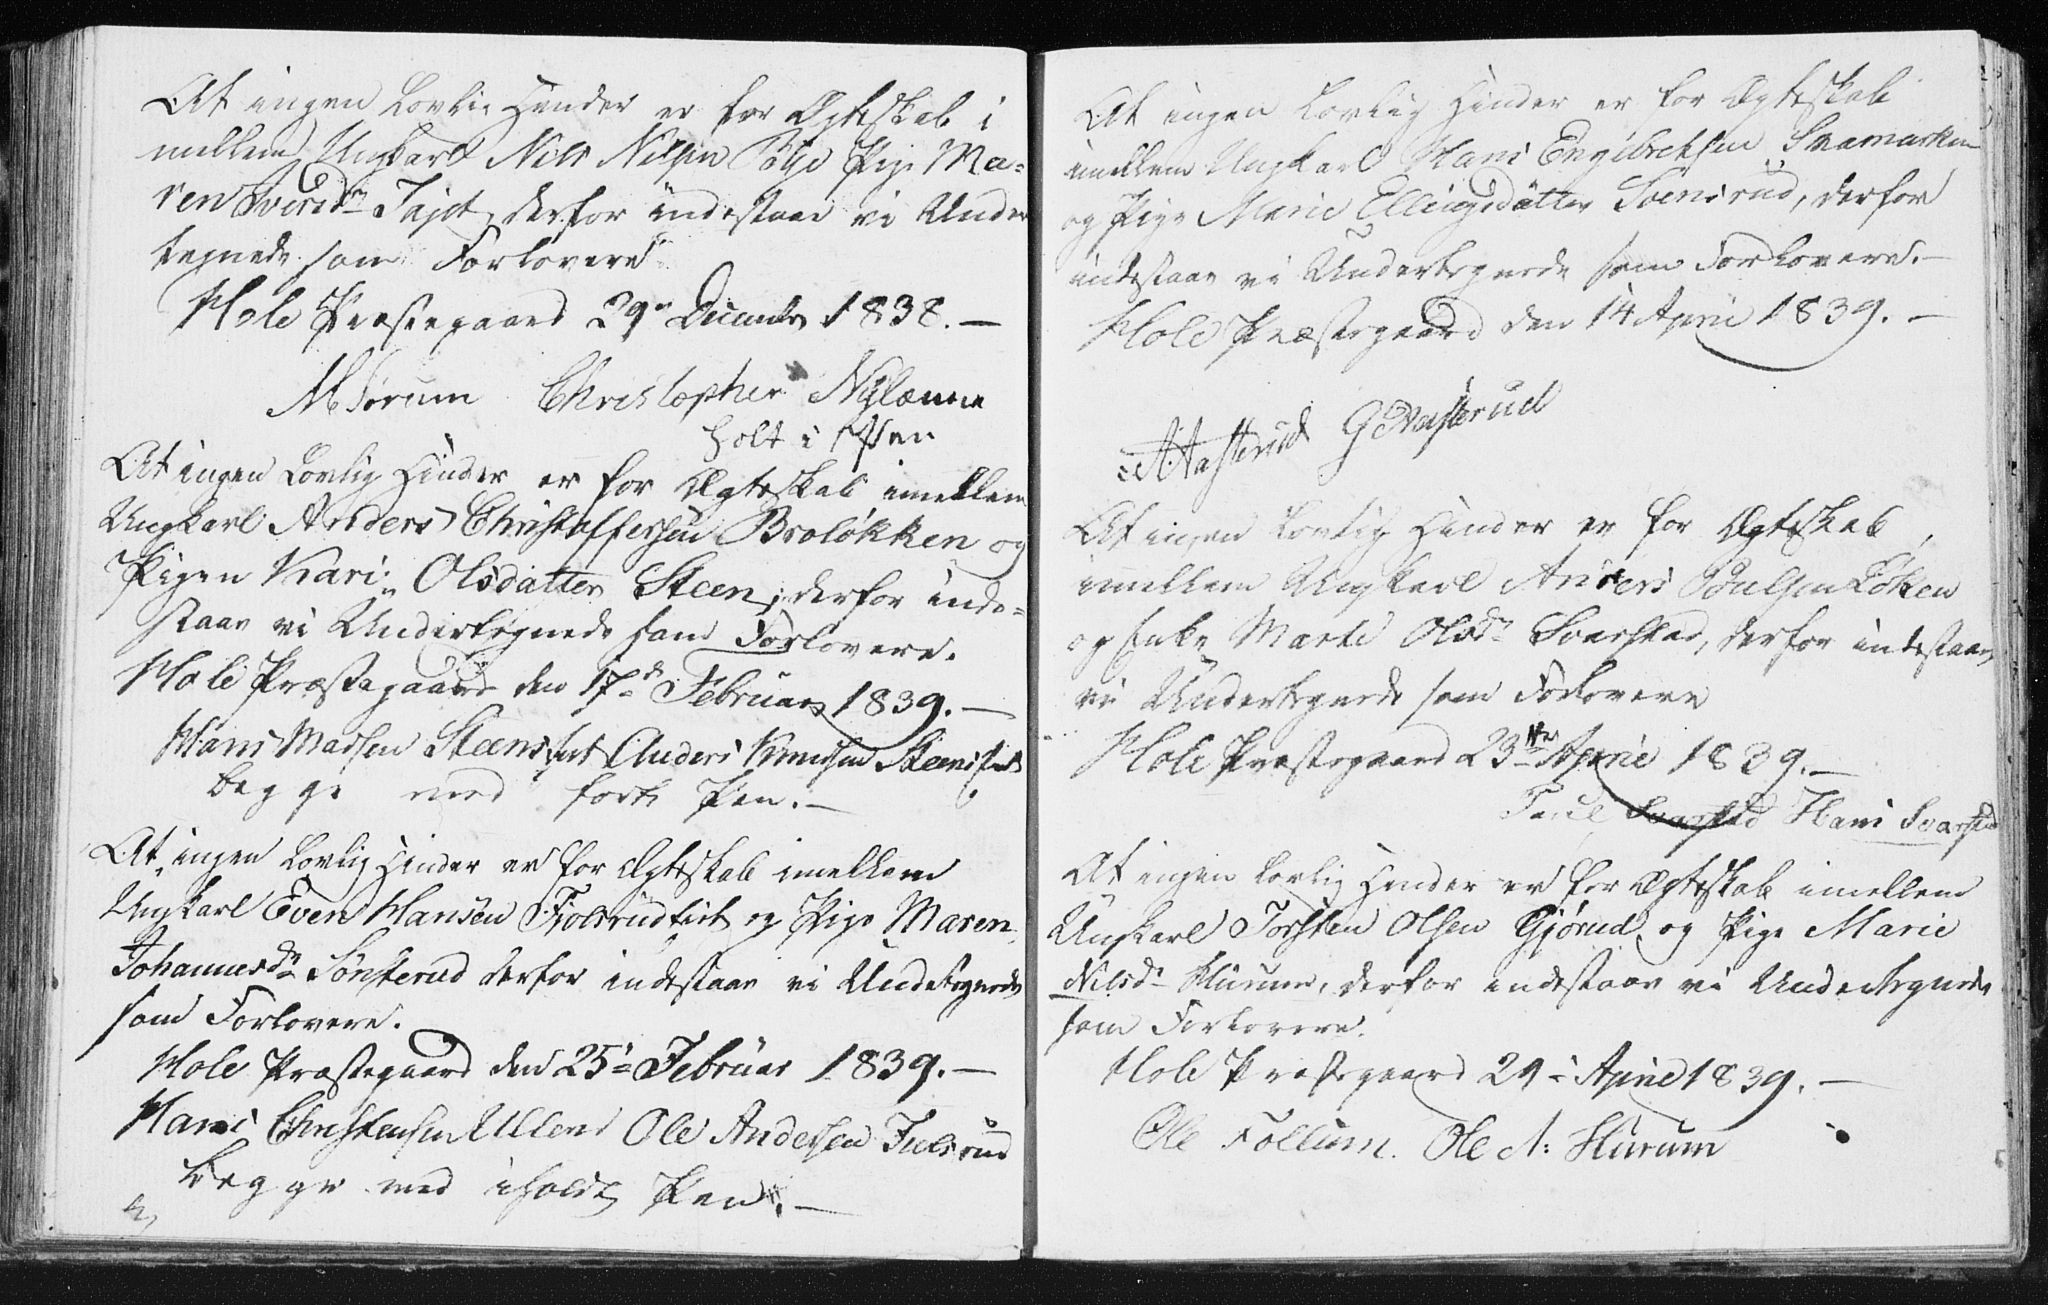 At ingen Lovlig Hinder er for Ægteskab i
mellem Ungkarl Nils Nilsen Pige Ma-
ren derfor indestaae vi Under
tegnede som Forlovere
Hole Præstegaard 29de December 1838. —
Christopher Nylænne
holt i Pen
At ingen Lovlig Hinder er for Ægteskab imellem
Ungkarl Anders Christoffersen Broløkken og
Pigen Kari Olsdatter Steen, derfor inde-
staae vi Undertegnede som Forlovere.
Hole Præstegaard den 17de Februar 1839. —
Hans Madsen Steens Anders Knudsen
begge med Pen. —
At ingen Lovlig Hinder er for Ægteskab imellem
Ungkarl Even Hansen og Pige Maren
Johannesdr Sønsterud derfor indestaae vi Undetegnede
som Forlovere.
Hole Præstegaard den 25de Februar 1839. —
Hans Christensen Ullern Ole Andersen Fulsrud
begge med iholdt Pen. —
At ingen Lovlig Hinder er for Ægteskab
imellem Ungkarl Hans Engebretsen Svamarken
og Pige Marie Ellingsdatter Svensrud, derfor
indestaae vi Undertegnede som Forlovere. —
Hole Præstegaard den 14 April 1839. —
At ingen Lovlig Hinder er for Ægteskab
imellem Ungkarl Anders Poulsen Løken
og Enke Marte Olsdr Svarstad, derfor indestaae
vi Undertegnede som Forlovere
Hole Præstegaard 23de April 1839. —
Svarstad Hans Svarstad
At ingen Lovlig Hinder er for Ægteskab imellem
Ungkarl Torsten Olsen Gjørud og Pige Marie
Nilsdr Hurum, derfor indestaae vi Undertegnede
som Forlovere.
Hole Præstegaard 29de April 1839. —
Ole Follum. Ole A: Hurum